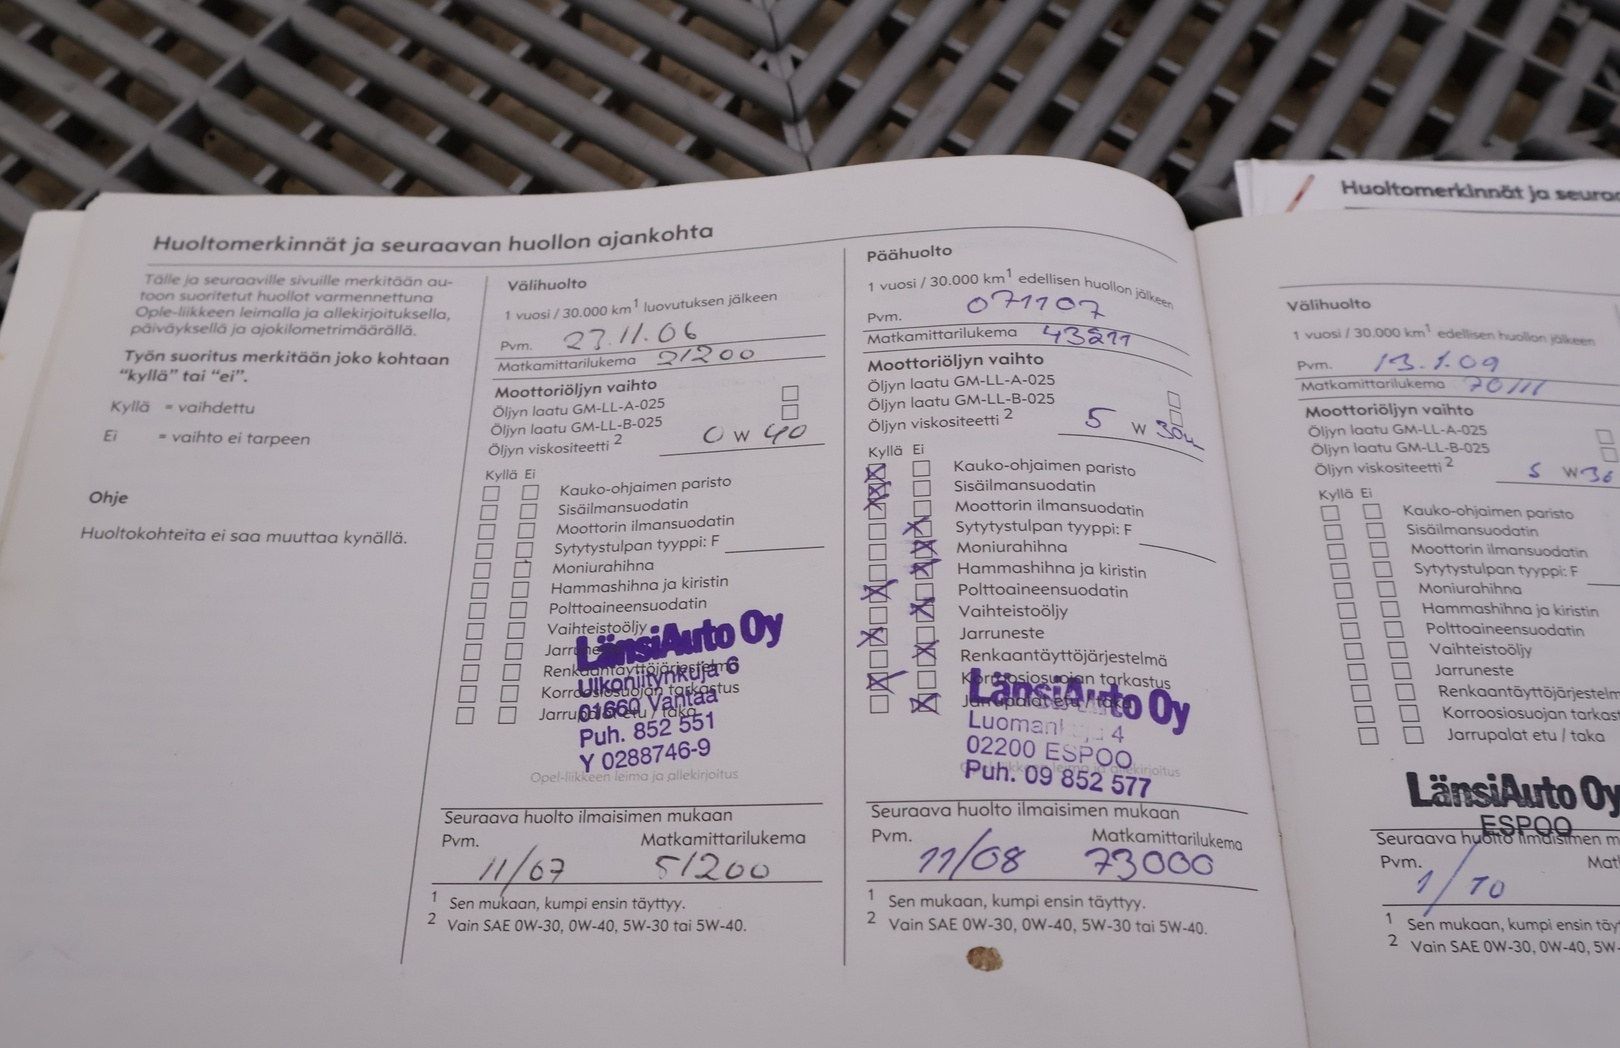 Huoltomerkinnät ja seuraavan huollon ajankohta
Tälle ja seuraaville sivuille merkitään au-
toon suoritetut huollot varmennettuna
Ople-liikkeen leimalla ja allekirjoituksella,
päiväyksellä ja ajokilometrimäärällä.
Työn suoritus merkitään joko kohtaan
“kyllä” tai “ei”.
Kyllä = vaihdettu
Ei = vaihto ei tarpeen
Ohje
Huoltokohteita ei saa muuttaa kynällä.
Välihuolto
1 vuosi / 30.000 km1 luovutuksen jälkeen
Pvm. 27.11.06
Matkamittarilukema 21200
Moottoriöljyn vaihto
Öljyn laatu GM-LL-A-025
Öljyn laatu GM-LL-B-025
Öljyn viskositeetti 2 0 W 40
Kyllä Ei
Kauko-ohjaimen paristo
Sisäilmansuodatin
Moottorin ilmansuodatin
Sytytystulpan tyyppi: F
Moniurahihna
Hammashihna ja kiristin
Polttoaineensuodatin
Vaihteistoöljy
Jarruneste
Renkaantäyttöjärjestelmä
Korroosiosuojan tarkastus
Jarrupalat etu / taka
LänsiAuto Oy
Ulkoniitynkuja 6
01660 Vantaa
Puh. 852 551
Y 0288746-9
Opel-liikkeen leima ja allekirjoitus
Seuraava huolto ilmaisimen mukaan
Pvm. Matkamittarilukema
11/07 51200
1 Sen mukaan, kumpi ensin täyttyy.
2 Vain SAE 0W-30, 0W-40, 5W-30 tai 5W-40.
Päähuolto
1 vuosi / 30.000 km1 edellisen huollon jälkeen
Pvm. 071107
Matkamittarilukema 43211
Moottoriöljyn vaihto
Öljyn laatu GM-LL-A-025
Öljyn laatu GM-LL-B-025
Öljyn viskositeetti 2 5 W 30
Kyllä Ei
Kauko-ohjaimen paristo
Sisäilmansuodatin
Moottorin ilmansuodatin
Sytytystulpan tyyppi: F
Moniurahihna
Hammashihna ja kiristin
Polttoaineensuodatin
Vaihteistoöljy
Jarruneste
Renkaantäyttöjärjestelmä
Korroosiosuojan tarkastus
Jarrupalat etu / taka
LänsiAuto Oy
4
02200 ESPOO
Puh. 09 852 577
Opel-liikkeen leima ja allekirjoitus
Seuraava huolto ilmaisimen mukaan
Pvm. Matkamittarilukema
11/08 73000
1 Sen mukaan, kumpi ensin täyttyy.
2 Vain SAE 0W-30, 0W-40, 5W-30 tai 5W-40.
Huoltomerkinnät ja
Välihuolto
1 vuosi / 30.000 km1 edellisen huollon jälkeen
Pvm. 13.1.09
Matkamittarilukema 70111
Moottoriöljyn vaihto
Öljyn laatu GM-LL-A-025
Öljyn laatu GM-LL-B-025
Öljyn viskositeetti 2 5 W 30
Kyllä Ei
Kauko-ohjaimen paristo
Sisäilmansuodatin
Moottorin ilmansuodatin
Sytytystulpan tyyppi: F
Moniurahihna
Hammashihna ja kiristin
Polttoaineensuodatin
Vaihteistoöljy
Jarruneste
Renkaantäyttöjärjestelm
Korroosiosuojan tarkast
Jarrupalat etu / taka
LänsiAuto Oy
ESPOO
Seuraava huolto ilmaisimen m
Pvm. Mat
1/10
1 Sen mukaan, kumpi ensin täy
2 Vain SAE 0W-30, 0W-40, 5W-